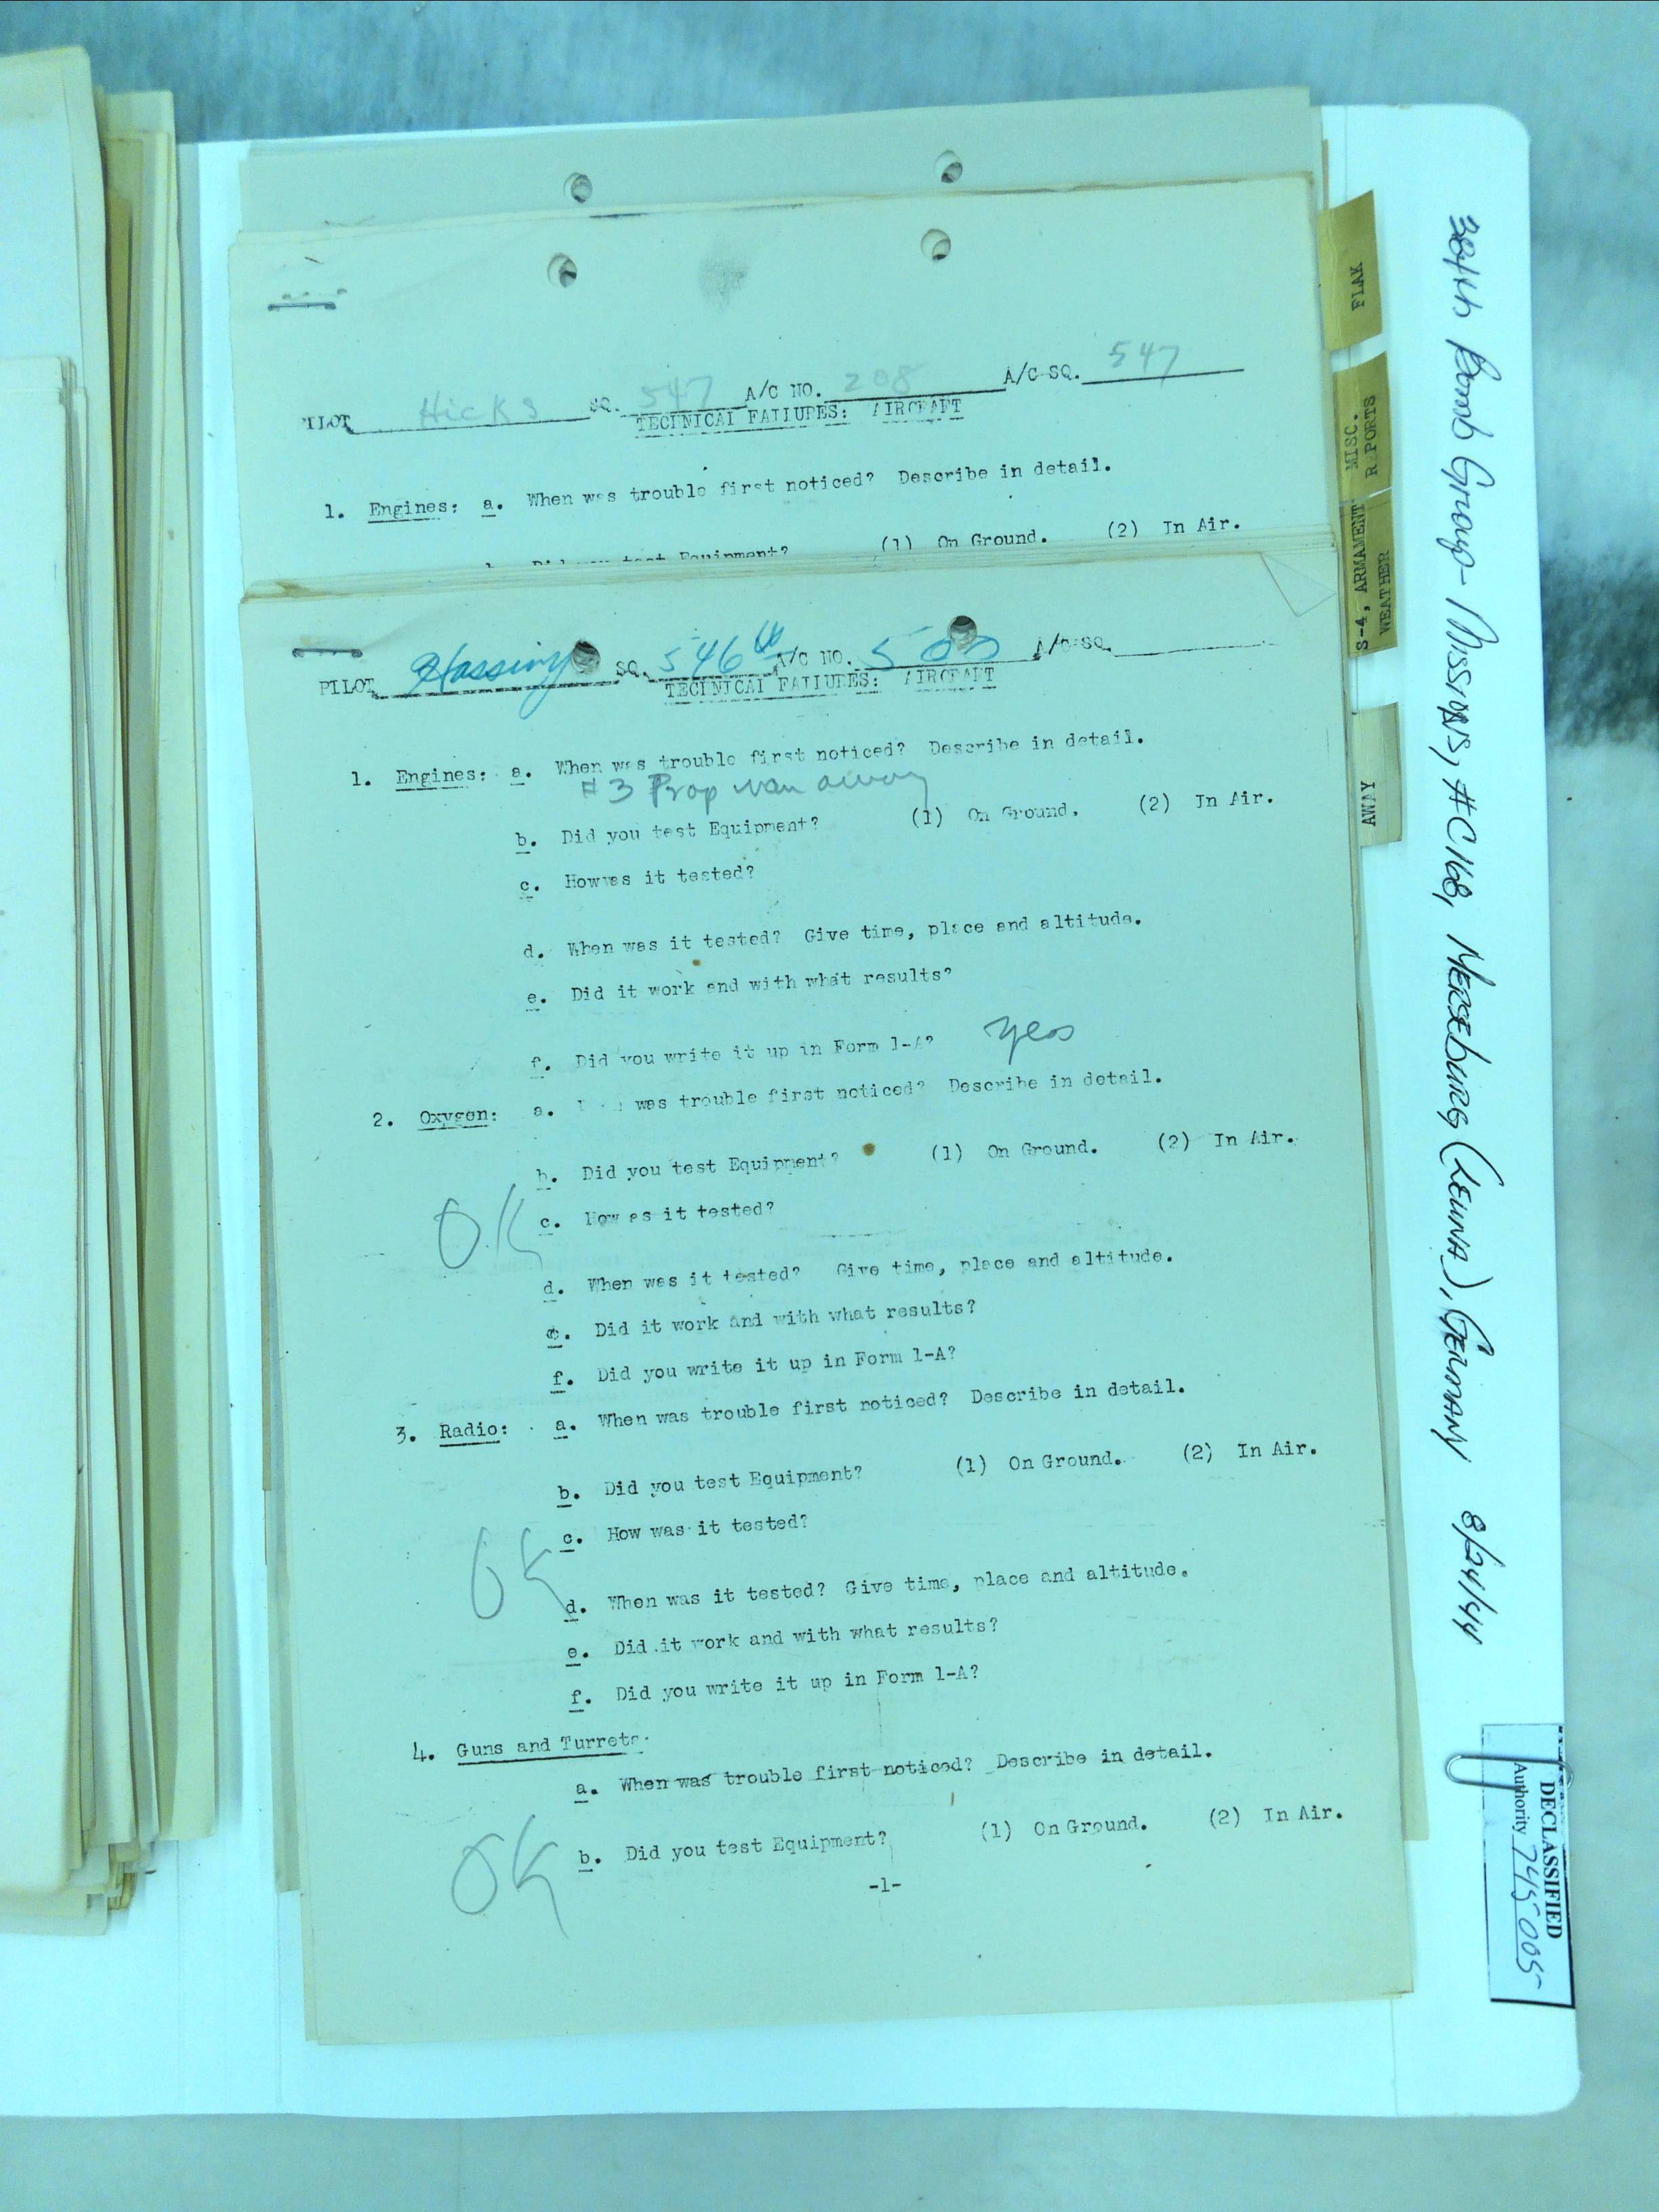 PILOT Hicks SQ. 547 A/C NO. 208 A/C SQ. 547
TECHNICAL FAILURES: AIRCRAFT
1. Engines: a. When was trouble first noticed? Describe in detail.
Did you test Equipment? (1) On Ground. (2) In Air.
PILOT SQ. 546th A/C NO. A/C SQ.
TECHNICAL FAILURES: AIRCRAFT
1. Engines: a. When was trouble first noticed? Describe in detail.
#3 Prop ran away
b. Did you test Equipment? (1) On Ground. (2) In Air.
c. How was it tested?
d. When was it tested? Give time, place and altitude.
e. Did it work and with what results?
f. Did you write it up in Form 1-A? yes
2. Oxygen: a. was trouble first noticed? Describe in detail.
b. Did you test Equipment? (1) On Ground. (2) In Air.
O.K
c. How as it tested?
d. When was it tested? Give time, place and altitude.
e. Did it work and with what results?
f. Did you write it up in Form 1-A?
3. Radio: a. When was trouble first noticed? Describe in detail.
b. Did you test Equipment? (1) On Ground. (2) In Air.
OK
c. How was it tested?
d. When was it tested? Give time, place and altitude.
e. Did it work and with what results?
f. Did you write it up in Form 1-A?
4. Guns and Turrets.
a. When was trouble first noticed? Describe in detail.
OK
b. Did you test Equipment? (1) On Ground. (2) In Air.
-1-
FLAK
MISC.
REPORTS
S-4, ARMAMENT
WEATHER
AWAY
384th Bomb Group - Missions, #C168, Merseburg (Leuna), Germany 8/24/44
DECLASSIFIED
Authority 745005